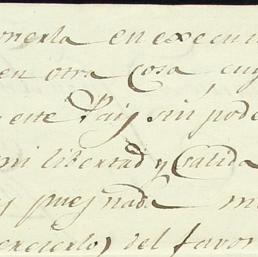 onerla en execu
en otra Cosa, cuy
este Pais sin pode
mi libertad y Salida
pues nad.ᵉ m
exercerlo) del favor